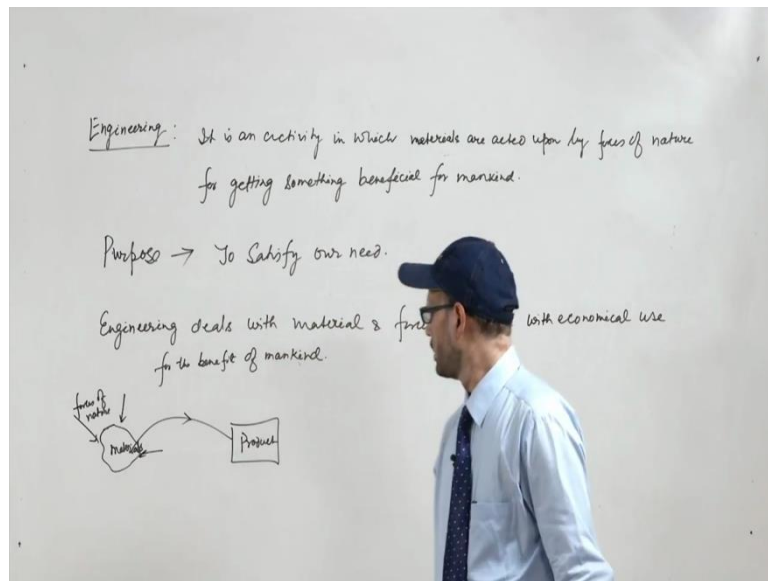 Engineering: It is an activity in which materials are acted upon by forces of nature
for getting something beneficial for mankind.
Purpose → To Satisfy our need.
Engineering deals with material & with economical use
for the benefit of mankind.
forces of
nature
materials
Product